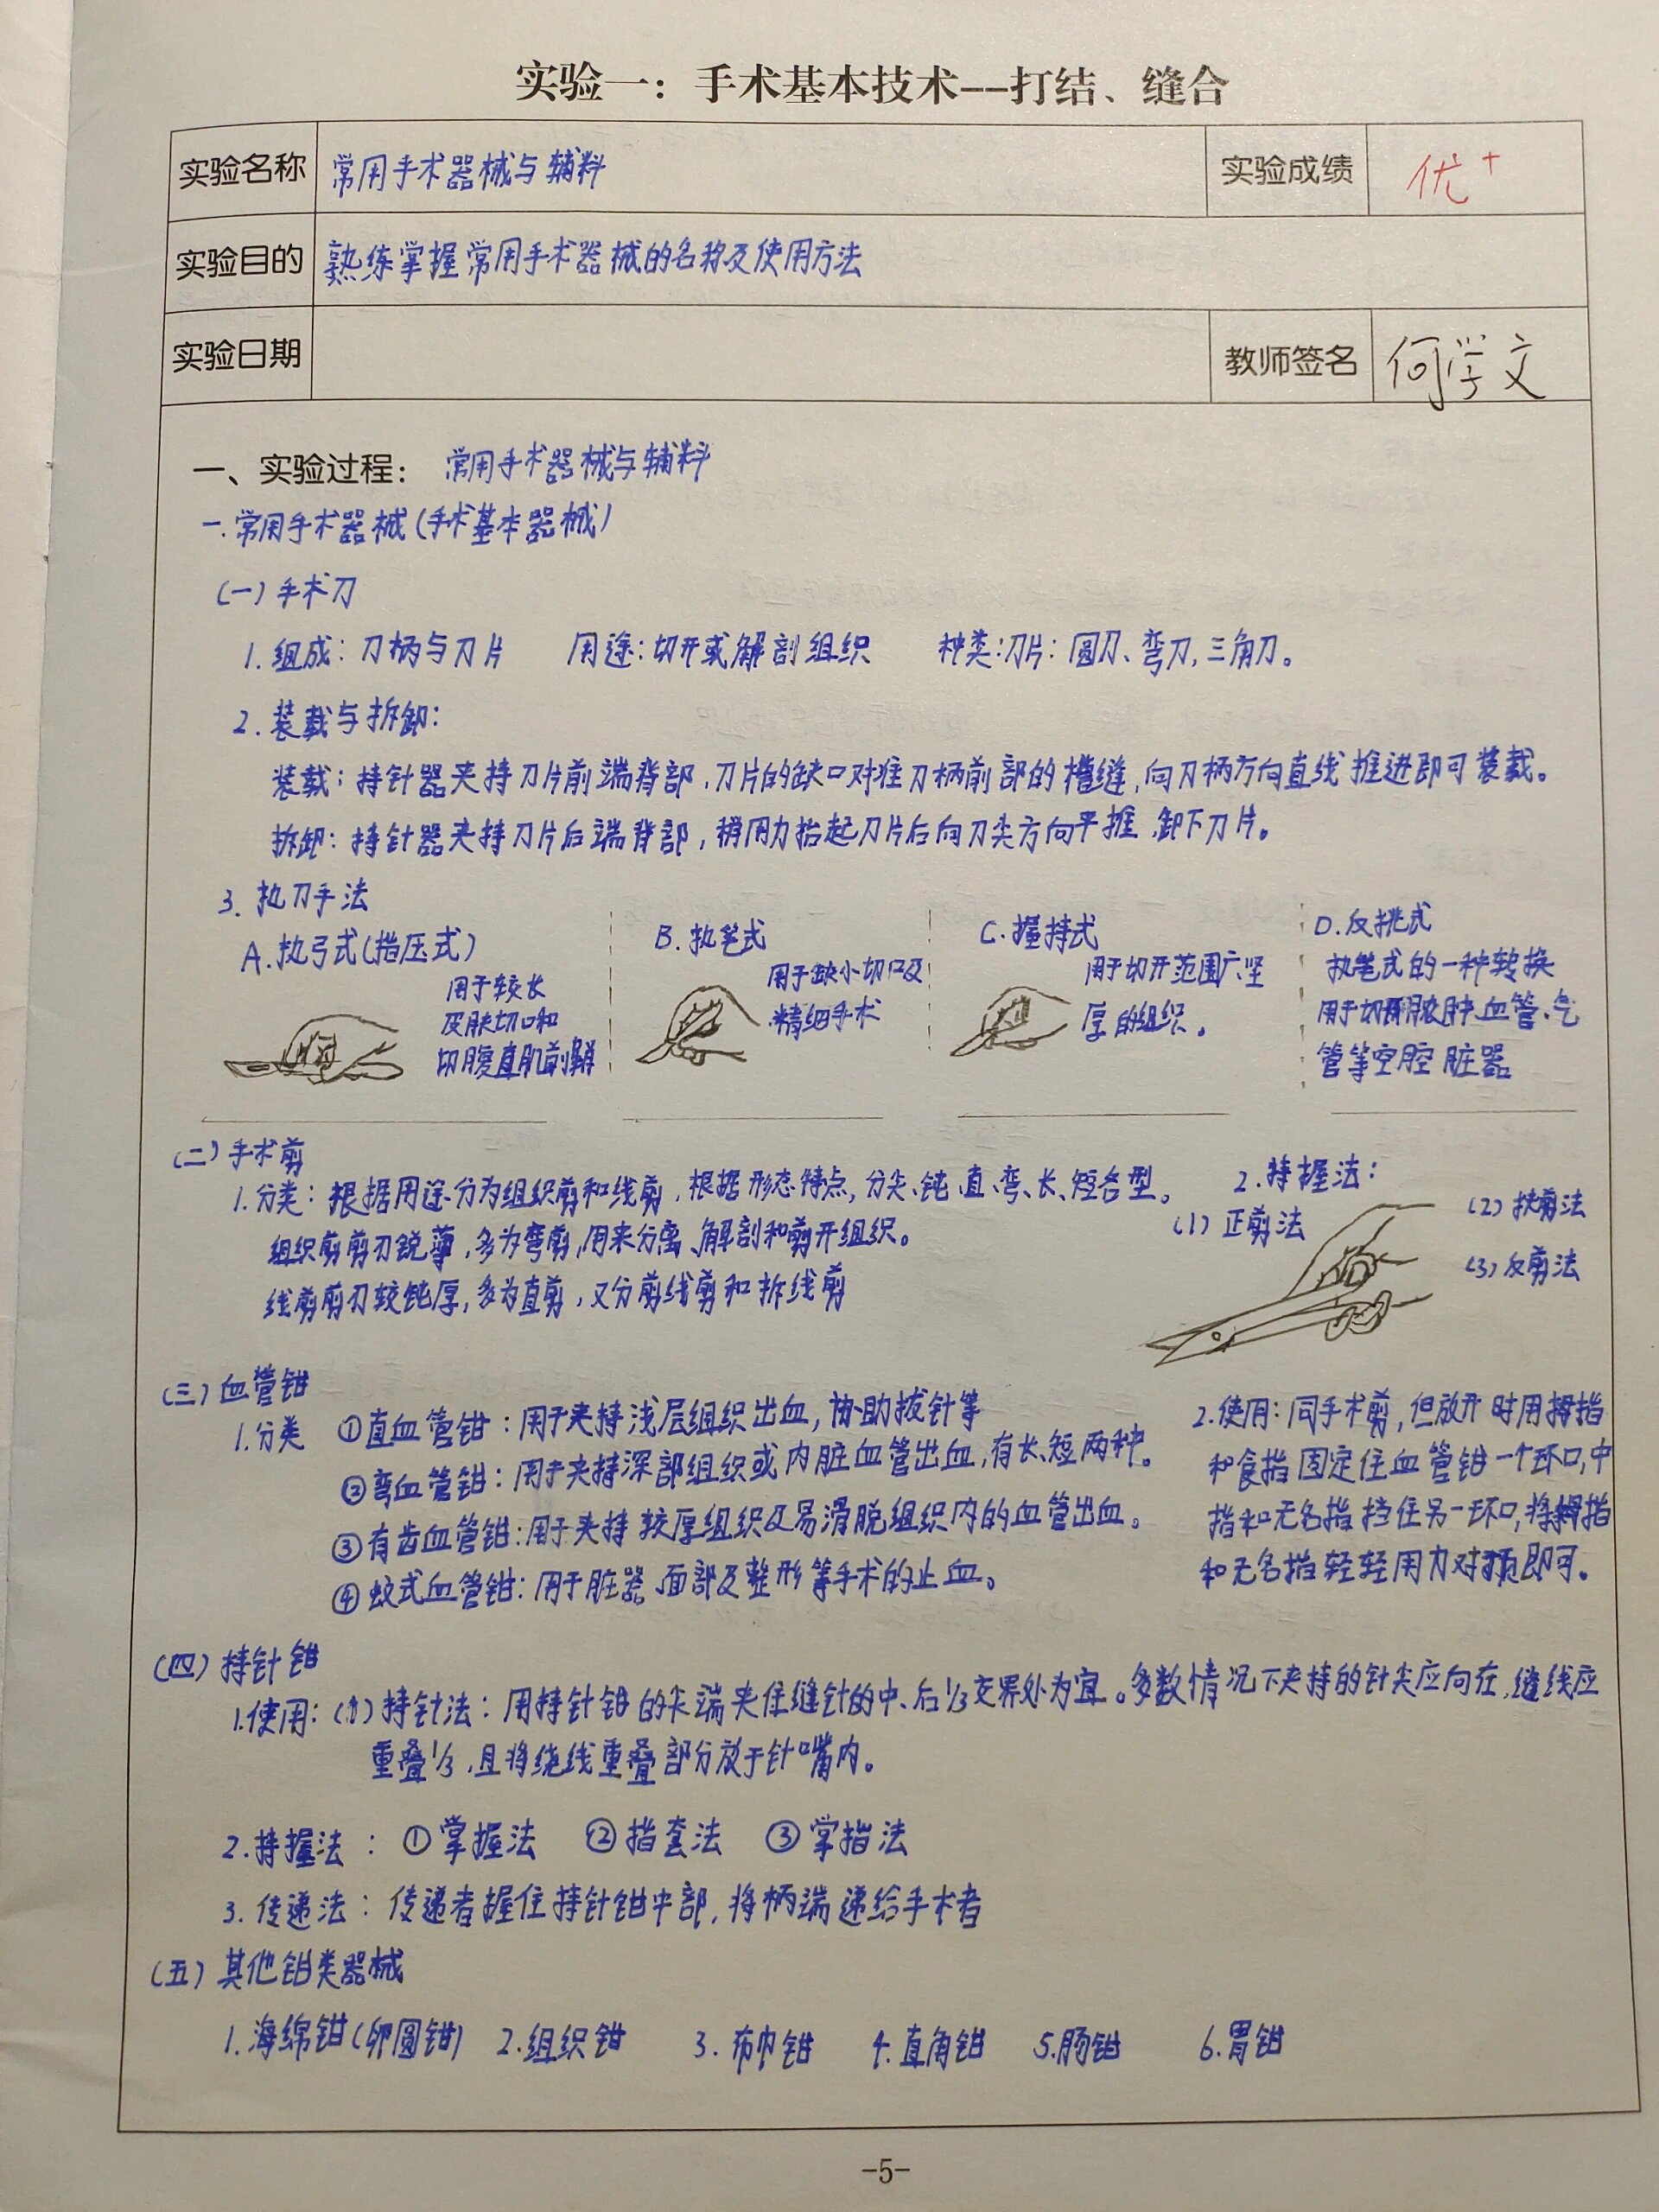 实验一：手术基本技术--打结、缝合
实验名称 常用手术器械与辅料 实验成绩 优+
实验目的 熟练掌握常用手术器械的名称及使用方法
实验日期 教师签名 何学文
一、实验过程： 常用手术器械与辅料
一.常用手术器械(手术基本器械)
(一)手术刀
1.组成：刀柄与刀片 用途：切开或解剖组织 种类：刀片：圆刀、弯刀,三角刀。
2.装载与拆卸：
装载：持针器夹持刀片前端背部,刀片的缺口对准刀柄前部的槽缝,向刀柄方向直线推进即可装载。
拆卸：持针器夹持刀片后端背部,稍用力抬起刀片后向刀尖方向平推 卸下刀片。
3.执刀手法
A.执弓式(指压式)
用于较长
皮肤切口和
切腹直肌前鞘
B.执笔式
用于缺小切口及
精细手术
C.握持式
用于切开范围广、坚
厚的组织。
D.反挑式
执笔式的一种转换
用于切开脓肿.血管、气
管等空腔脏器
(二)手术剪
1.分类：根据用途分为组织剪和线剪,根据形态特点,分尖、钝、直、弯、长、短各型。
组织剪剪刃锐薄,多为弯剪,用来分离、解剖和剪开组织。
线剪剪刃较钝厚,多为直剪,又分剪线剪和拆线剪
2.持握法：
(1)正剪法
(2)扶剪法
(3)反剪法
(三)血管钳
1.分类 ①直血管钳：用于夹持浅层组织出血,协助拔针等
②弯血管钳：用于夹持深部组织或内脏血管出血,有长、短两种。
③有齿血管钳:用于夹持较厚组织及易滑脱组织内的血管出血。
④蚊式血管钳：用于脏器、面部及整形等手术的止血。
2.使用：同手术剪,但放开时用拇指
和食指固定住血管钳一个环口,中
指和无名指挡住另一环口,将拇指
和无名指轻轻用力对顶即可。
(四)持针钳
1.使用：(1)持针法：用持针钳的尖端夹住缝针的中、后1/3交界处为宜。多数情况下夹持的针尖应向在,缝线应
重叠1/3,且将绕线重叠部分放于针嘴内。
2.持握法：①掌握法 ②指套法 ③掌指法
3.传递法：传递者握住持针钳中部,将柄端递给手术者
(五)其他钳类器械
1.海绵钳(卵圆钳) 2.组织钳 3.布巾钳 4.直角钳 5.肠钳 6.胃钳
-5-